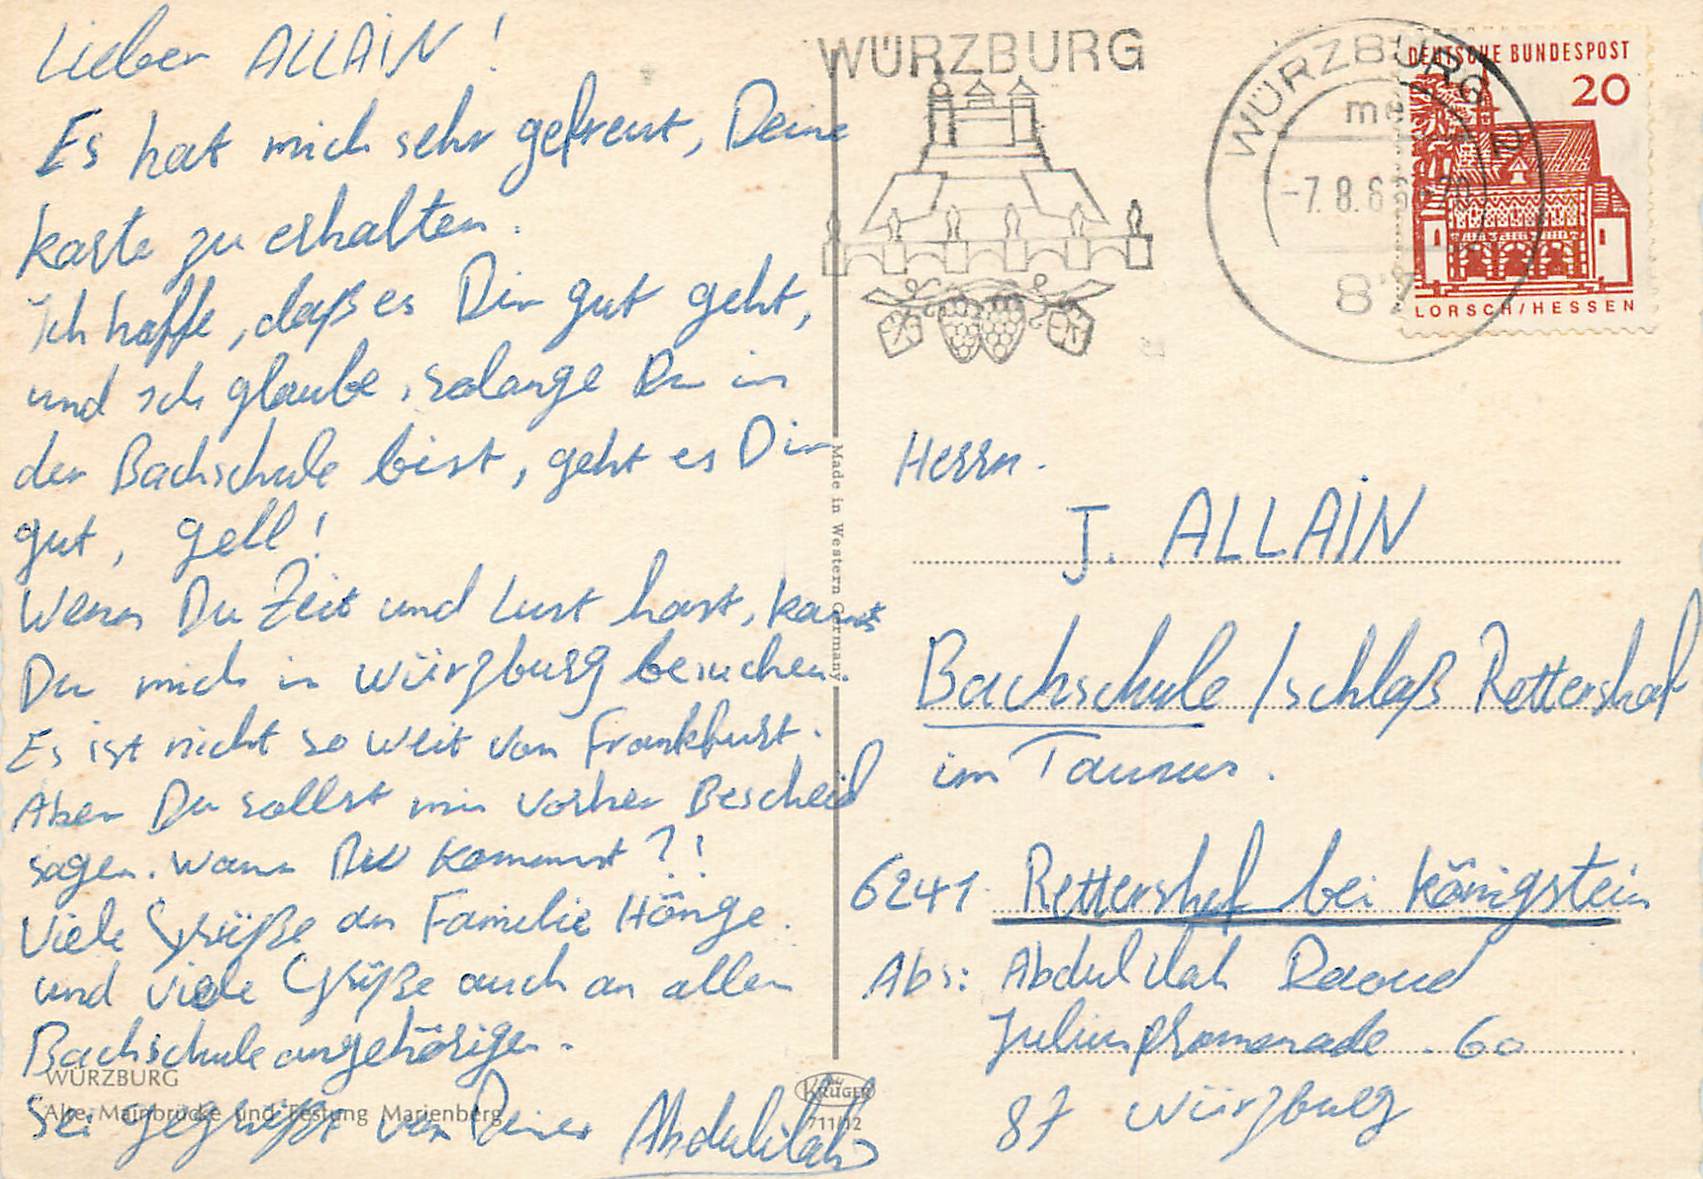 Lieber ALLAIN !
Es hat mich sehr gefreut, Deine
Karte zu erhalten.
Ich hoffe, daß es Dir gut geht,
und ich glaube, solange Du in
der Bachschule bist, geht es Dir
gut, gell!
Wenn Du Zeit und Lust hast, kannst
Du mich in Würzburg besuchen.
Es ist nicht so weit von Frankfurt.
Aber Du sollst mir vorher Bescheid
sagen. Wann Du kommst ?!
Viele Grüße an Familie Hönge.
und viele Grüße auch an allen
Bachschuleangehörigen.
Sei gegrüßt von Deiner Abdulilah
WÜRZBURG
Alte Mainbrücke und Festung Marienberg
Made in Western Germany
KRÜGER
711/12
WÜRZBURG
WÜRZBURG 2
-7.8.6
87
DEUTSCHE BUNDESPOST
20
LORSCH/HESSEN
Herrn.
J. ALLAIN
Bachschule / Schloß Rettershof
im Taunus.
6241 Rettershof bei Königstein
Abs: Abdulilah Daoud
Juliuspromenade. 60
87 Würzburg